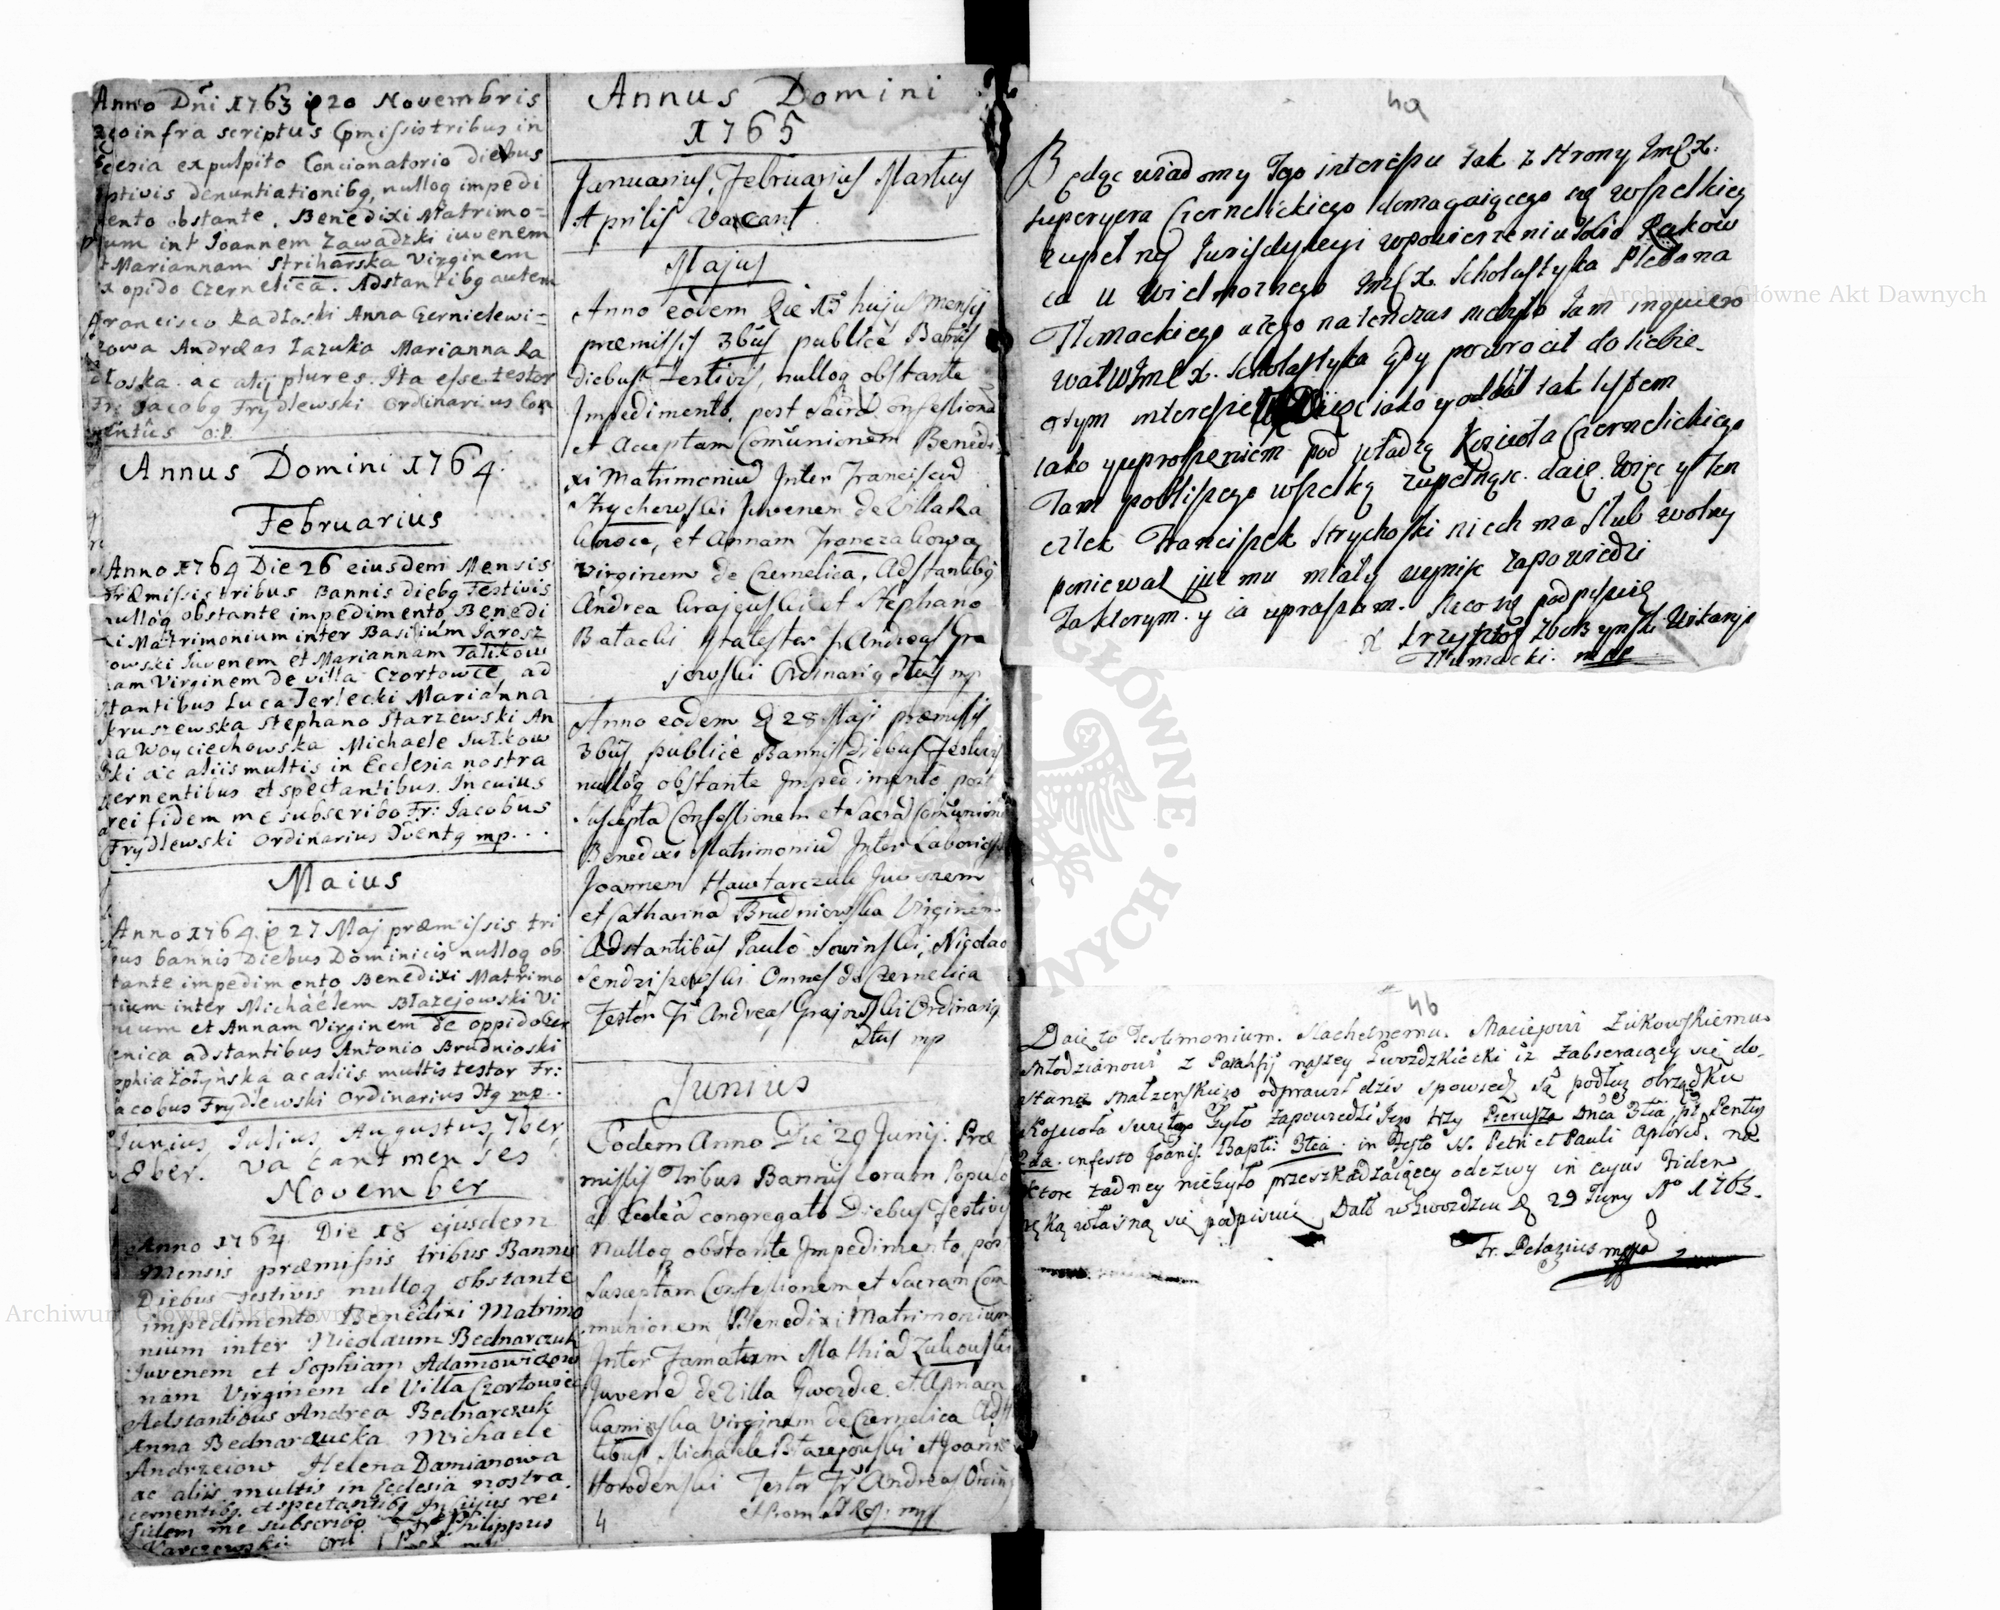 Anno Dni 1763 20 Novembris
infra scriptus pmissis tribus in
ex pulpito Concionatorio diebus
denuntiationibq, nulloq impedi
ento obstante. Benedixi Matrimo=
um int Joannem Zawadzki iuvenem
Mariannam Striharska Virginem
opido Czernelica. Adstantibq autem
Francisco Radłoski Anna Czernielewi=
zowa Andræas Zazuka Marianna Ra
dłoska ac alij plures. Ita esse testor
Fr: Jacobq Frydlewski Ordinarius Con
ventûs O:P.
Annus Domini 1764.
Februarius
Anno 1764 Die 26 eiusdem Mensis
Præmissis tribus Bannis diebq Festivis
nulloq obstante impedimento Benedi
xi Matrimonium inter Basilium Jarosz
owski Juvenem et Mariannam Tatkow
nam Virginem de villa Czortowce, ad
stantibus Luca Jerlecki Marianna
Kruszewska Stephano Starzewski An
na Woyciechowska Michaele Sutkow
ski ac aliis multis in Ecclesia nostra
cernentibus et spectantibus. In cuius
rei fidem me subscribo Fr: Jacobus
Frydlewski Ordinarius Iventq mp...
Maius
Anno 1764. 27 Maj præmissis tri
bus bannis Diebus Dominicis nulloq ob
stante impedimento Benedixi Matrimo
nium inter Michäelem Błażejowski Vi
duum et Annam Virginem de oppido Czer
nenica adstantibus Antonio Brudnioski
Sophia Zołyńska ac aliis multis testor Fr:
Jacobus Frydlewski Ordinarius Itq mp.
Junius Julius Augustus 7ber
8ber. vacant menses
November
Anno 1764 Die 18 ejusdem
Mensis præmissis tribus Bannis
Diebus Festivis nulloq obstante
impedimento Benedixi Matrimo
nium inter Nicolaum Bednarczuk
Juvenem et Sophiam Adamowiczow
nam Virginem de Villa Czortowiec
Adstantibus Andrea Bednarczuk
Anna Bednarczucka Michaele
Andrzeiow Helena Damianowa
ac aliis multis in Ecclesia nostra
cernentibq et spectantibq In cujus rei
fidem me subscribo Fr: Philippus
Karczewski Ord
Annus Domini
1765
Januarius, Februarius Martius
Aprilis Vacant.
Majus
Anno eodem Die 15 hujus Mensis
præmissis 3bus publice Banis
diebus Festivis, nulloq obstante
Impedimento, post Sacra Confessione
et Acceptam Comunionem Benedi
xi Matrimoniu Inter Franciscu
Strychowski Juvenem de Villa Ra
kowca, et Annam Franczakowa
Virginem de Czernelica, Adstantibq
Andrea Grajewski et Stephano
Batacki Ita testor fr Andreas Gra
jewski Ordinariq Itus mp
Anno eodem D 28 Maji præmissis
3bus publice Bannis diebus Festivis
nulloq obstante Impedimento, post
Suscepta Confessionem et Sacra Comunione
Benedixi Matrimoniu Inter Laborios
Joannem Hawtarczuk Juvenem
et Catharina Brudniowska Virginem
Adstantibus Paulo Sowinski, Nicolao
Sendziszewski Omnes de Czernelica
Testor Fr Andreas Grajowski Ordinariq
Itus mp
Junius
Eodem Anno Die 29 Junij. Præ
missis Tribus Bannis coram Populo
ad Eccleã congregato Diebus Festivis
Nulloq obstante Impedimento, post
Susceptam Confessionem et Sacram Com
munionem Benedixi Matrimonium
Inter Famatum Mathia Zukowski
Juvene de Villa Gwozdze, et Annam
Kaminska Virginem de Czernelica Adst
tibus Michaele Błazejowski et Joanne
Horodenski Testor Fr Andreas Ordin
4
4a
Będąc wiadomy Tego interessu tak z strony ImCX.
Superyera Czernelickiego domagaiącego się wszelkiey
zupełney Jurisdykcyi w powierzeniu Rakow
ca u Wielmoznego ImCX. Scholastyka Plebana
Tłumackiego a tego natenczas niebyło Jam inquiero
wał W ImCX. Scholastyka Gdy powrocił do siebie
o tym interessie iako y oddał tak listem
iako y uproszeniem pod władzę Koscioła Czernelickiego
Tam pobliszego wszelką zupełnąsc daie. Więc y Ten
człek Franciszek Strychoski niech ma slub wolny
poniewaz juz mu miały wynisc zapowiedzi
Za ktorym y ia upraszam. Na co się podpisuię
X Krzysztof Zborzynski Wikaryi
Tłumacki. mpp
4b
Daię to Testimonium. Szachetnemu. Maciejowi Zukowskiemu
Młodzianowi z Parahfij naszey Gwozdzkiecki iz zabieraiący się do
stanu Małzenskiego odprawił dzis spowiedz Są podług obrządku
Koscioła Swiętego było zapowiedzi Jego trzy Pierwsza Dnca 3tia pt Pentes
2da. in festo Joanis Bapti: 3tia in Festo SS. Petri et Pauli Aplorũ. na
ktore zadney niebyło przeszkadzaiącey odezwy in cujus Fidem
ręką własną się podpisuię Dat w Gwozdzcu D 29 Juny Nº 1765.
Fr. Pelazius mppa
Archiwum Główne Akt Dawnych
Archiwum Główne Akt Dawnych